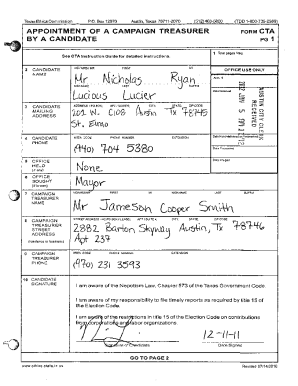 Texas Ethics Commission P.O. Box 12070 Austin, Texas 78711-2070 (512) 463-5800 (TDD 1-800-735-2989)
APPOINTMENT OF A CAMPAIGN TREASURER BY A CANDIDATE
FORM CTA
PG 1
See CTA Instruction Guide for detailed instructions.
1 Total pages filed:
2 CANDIDATE NAME
MS/MRS/MR FIRST MI
Mr. Nicholas Ryan
NICKNAME LAST SUFFIX
Lucious Lucier
OFFICE USE ONLY
AUSTIN CITY CLERK
RECEIVED
3 CANDIDATE MAILING ADDRESS
ADDRESS / PO BOX; APT / SUITE #; CITY; STATE; ZIP CODE
Austin Tx 78745
St. Elmo
4 CANDIDATE PHONE
AREA CODE PHONE NUMBER EXTENSION
(940) 704 5380
5 OFFICE HELD (if any)
None
6 OFFICE SOUGHT (if known)
Mayor
7 CAMPAIGN TREASURER NAME
MS/MRS/MR FIRST MI NICKNAME LAST SUFFIX
Mr Jameson Cooper Smith
8 CAMPAIGN TREASURER STREET ADDRESS
(residence or business)
2882 Barton Skyway Austin, Tx 78746
Apt 237
9 CAMPAIGN TREASURER PHONE
AREA CODE PHONE NUMBER EXTENSION
(970) 231 3593
10 CANDIDATE SIGNATURE
I am aware of the Nepotism Law, Chapter 573 of the Texas Government Code.
I am aware of my responsibility to file timely reports as required by title 15 of the Election Code.
I am aware of the restrictions in title 15 of the Election Code on contributions from corporations and labor organizations.
12-11-11
Signature of Candidate Date Signed
GO TO PAGE 2
www.ethics.state.tx.us Revised 07/14/2010